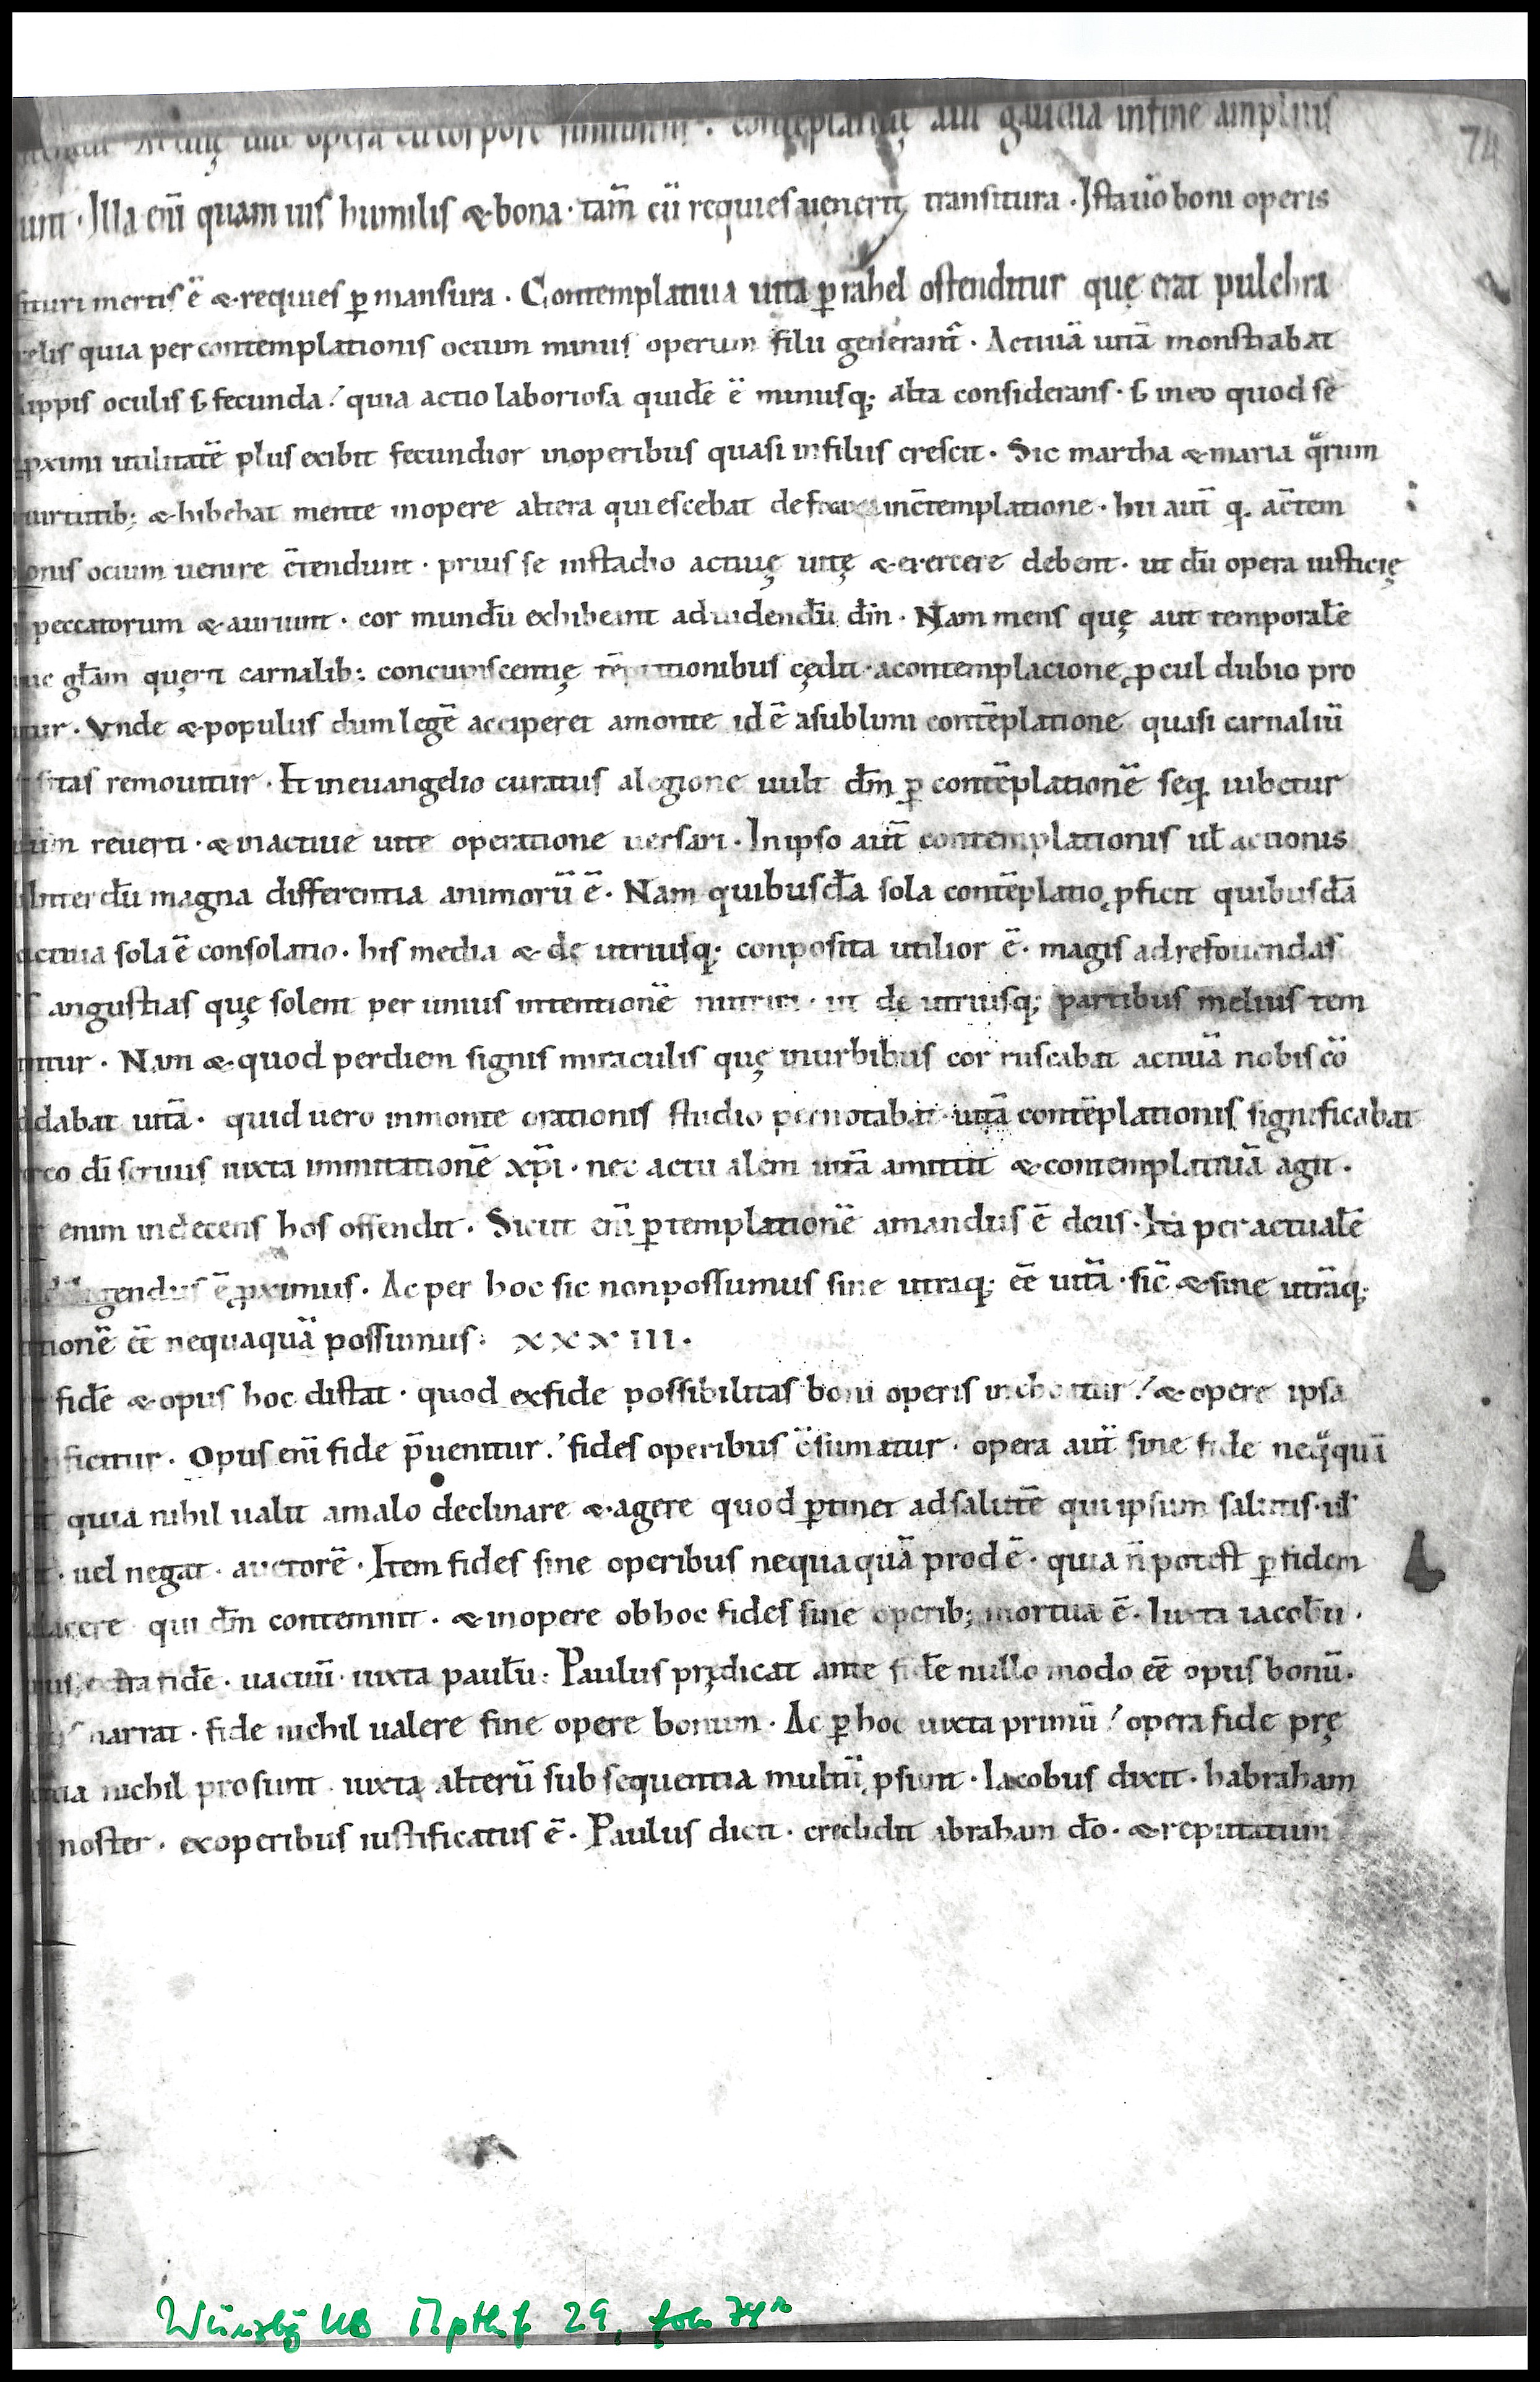 opera cū corpore finiunt͛ . contēplatiuę aut̄ gaudia in fine amplius
74
unt . Illa eni̅ quam uis humilis & bona · tam̄ cū requies uenerit transitura . Ista uo boni operis
situri meritis ē & requies ꝑ mansura . Contemplatiua uita ꝑ rahel ostenditur quę erat pulchra
quia per contemplationis ocium minus operum filii generant̄ . Actiuā uitā monstrabat
lippis oculis s; fecunda ./ quia actio laboriosa quidē ē minusq; alta considerans · s; in eo quod se
ꝓximi utilitatē plus exibit fecundior in operibus quasi in filiis crescit . Sic martha & maria qͣrum
uirtutib; & hibebat mente in opere altera quiescebat defixa in c̄templatione . hii aut̄ q. ac̄tem
onis ocium uenire c̄tendunt . prius se in stadio actiuę uitę & exercere debent · ut dū opera iusticię
peccatorum & auriunt . cor mundū exhibeant ad uidendū dm̄ . Nam mens quę aut temporalē
gl̄am querit carnalib; concupiscentię tēptationibus cędit · a contemplacione ꝓcul dubio pro
tur . Vnde & populus dum legē acciperet a monte id ē a sublimi contēplatione quasi carnaliū
sitas remouitur . Et in euangelio curatus a legione uult dm̄ ꝑ contēplationē seq. iubetur
um reuerti · & in actiue uite operatione uersari . In ipso aut̄ contemplationis ul̄ actionis
Inter dū magna differentia animorū ē . Nam quibusdā sola contēplatio ꝓficit quibusdā
actiua sola ē consolatio . his media & de utriusq; conposita utilior ē . magis ad refouendas
angustias quę solent per unius intentionē nutriri · ut de utriusq; partibus melius tem
ntur . Nam & quod per diem signis miraculis quę in urbibus cor ruscabat actiuā nobis cō
dabat uitā . quid uero in monte orationis studio pernotabat · uitā contēplationis significabat
co dī seruus iuxta immitationē xp̄i . nec actualem uitā amittit & contemplatiuā agit .
enim incedens hos offendit . Sicut eni̅ ꝑ templationē amandus ē deus . Ita per actualē
diligendus ē ꝓximus . Ac per hoc sic non possumus sine utraq; eē uitā . sic̄ & sine utrāq;
tionē eē nequaquā possumus . XXXIII .
fidē & opus hoc distat . quod ex fide possibilitas boni operis inchoatur ./ & opere ipsa
ficitur . Opus eni̅ fide p̄uenitur ./ fides operibus c̄sumatur . opera aut̄ sine fide neqͣquā
quia nihil ualit a malo declinare & agere quod ꝑtinet ad salutē qui ipsum salutis · ul̄
uel negat . auctorē . Item fides sine operibus nequaquā prod ē . quia n̄ potest ꝑ fidem
lacere qui dm̄ contemnit . & in opere ob hoc fides sine operib; mortua ē . Iuxta iacobū .
fidē . uacuū . iuxta paulū . Paulus prędicat ante fidē nullo modo eē opus bonū .
narrat . fide nichil ualere sine opere bonum . Ac ꝑ hoc iuxta primū ./ opera fide prę
nichil prosunt . iuxta alterū subsequentia multū ꝓsunt . Iacobus dixit . habraham
noster . ex operibus iustificatus ē . Paulus dicit . credidit abraham do̅ . & reputatum